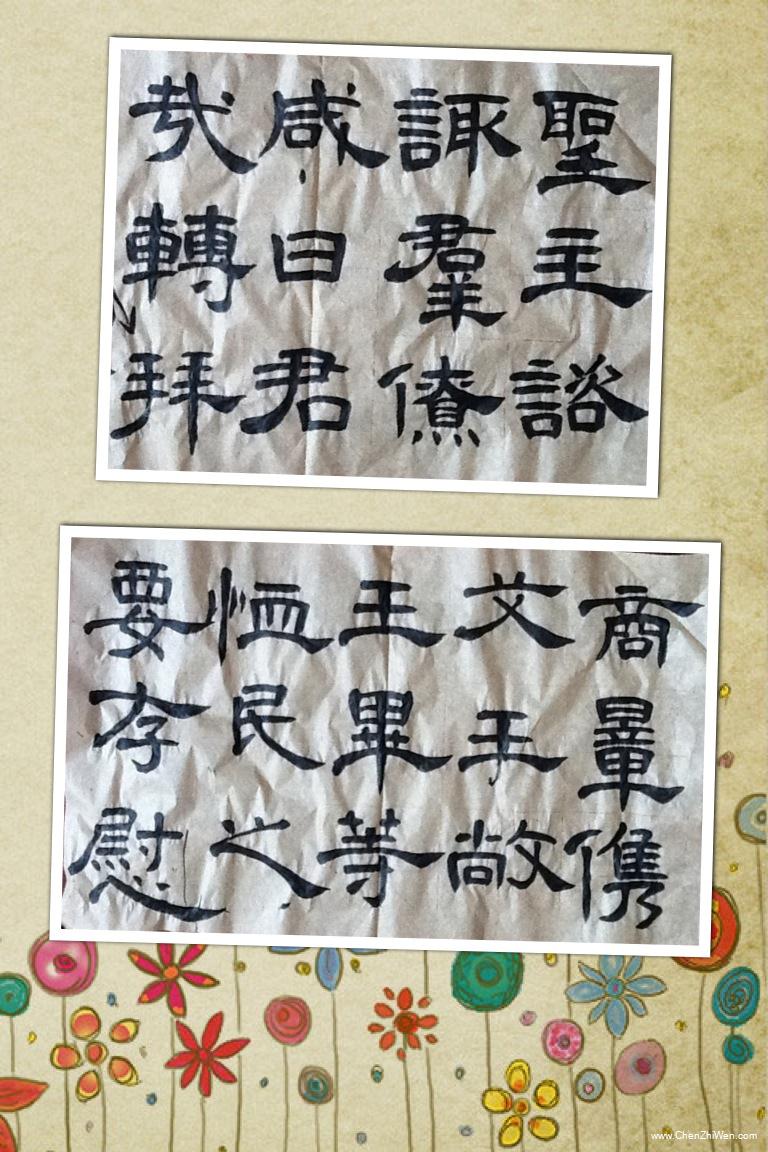 聖主諮
諏羣僚
咸曰君
哉轉拜
商暈儁
艾王敞
王畢等
恤民之
要存慰
www.ChenZhiWen.com